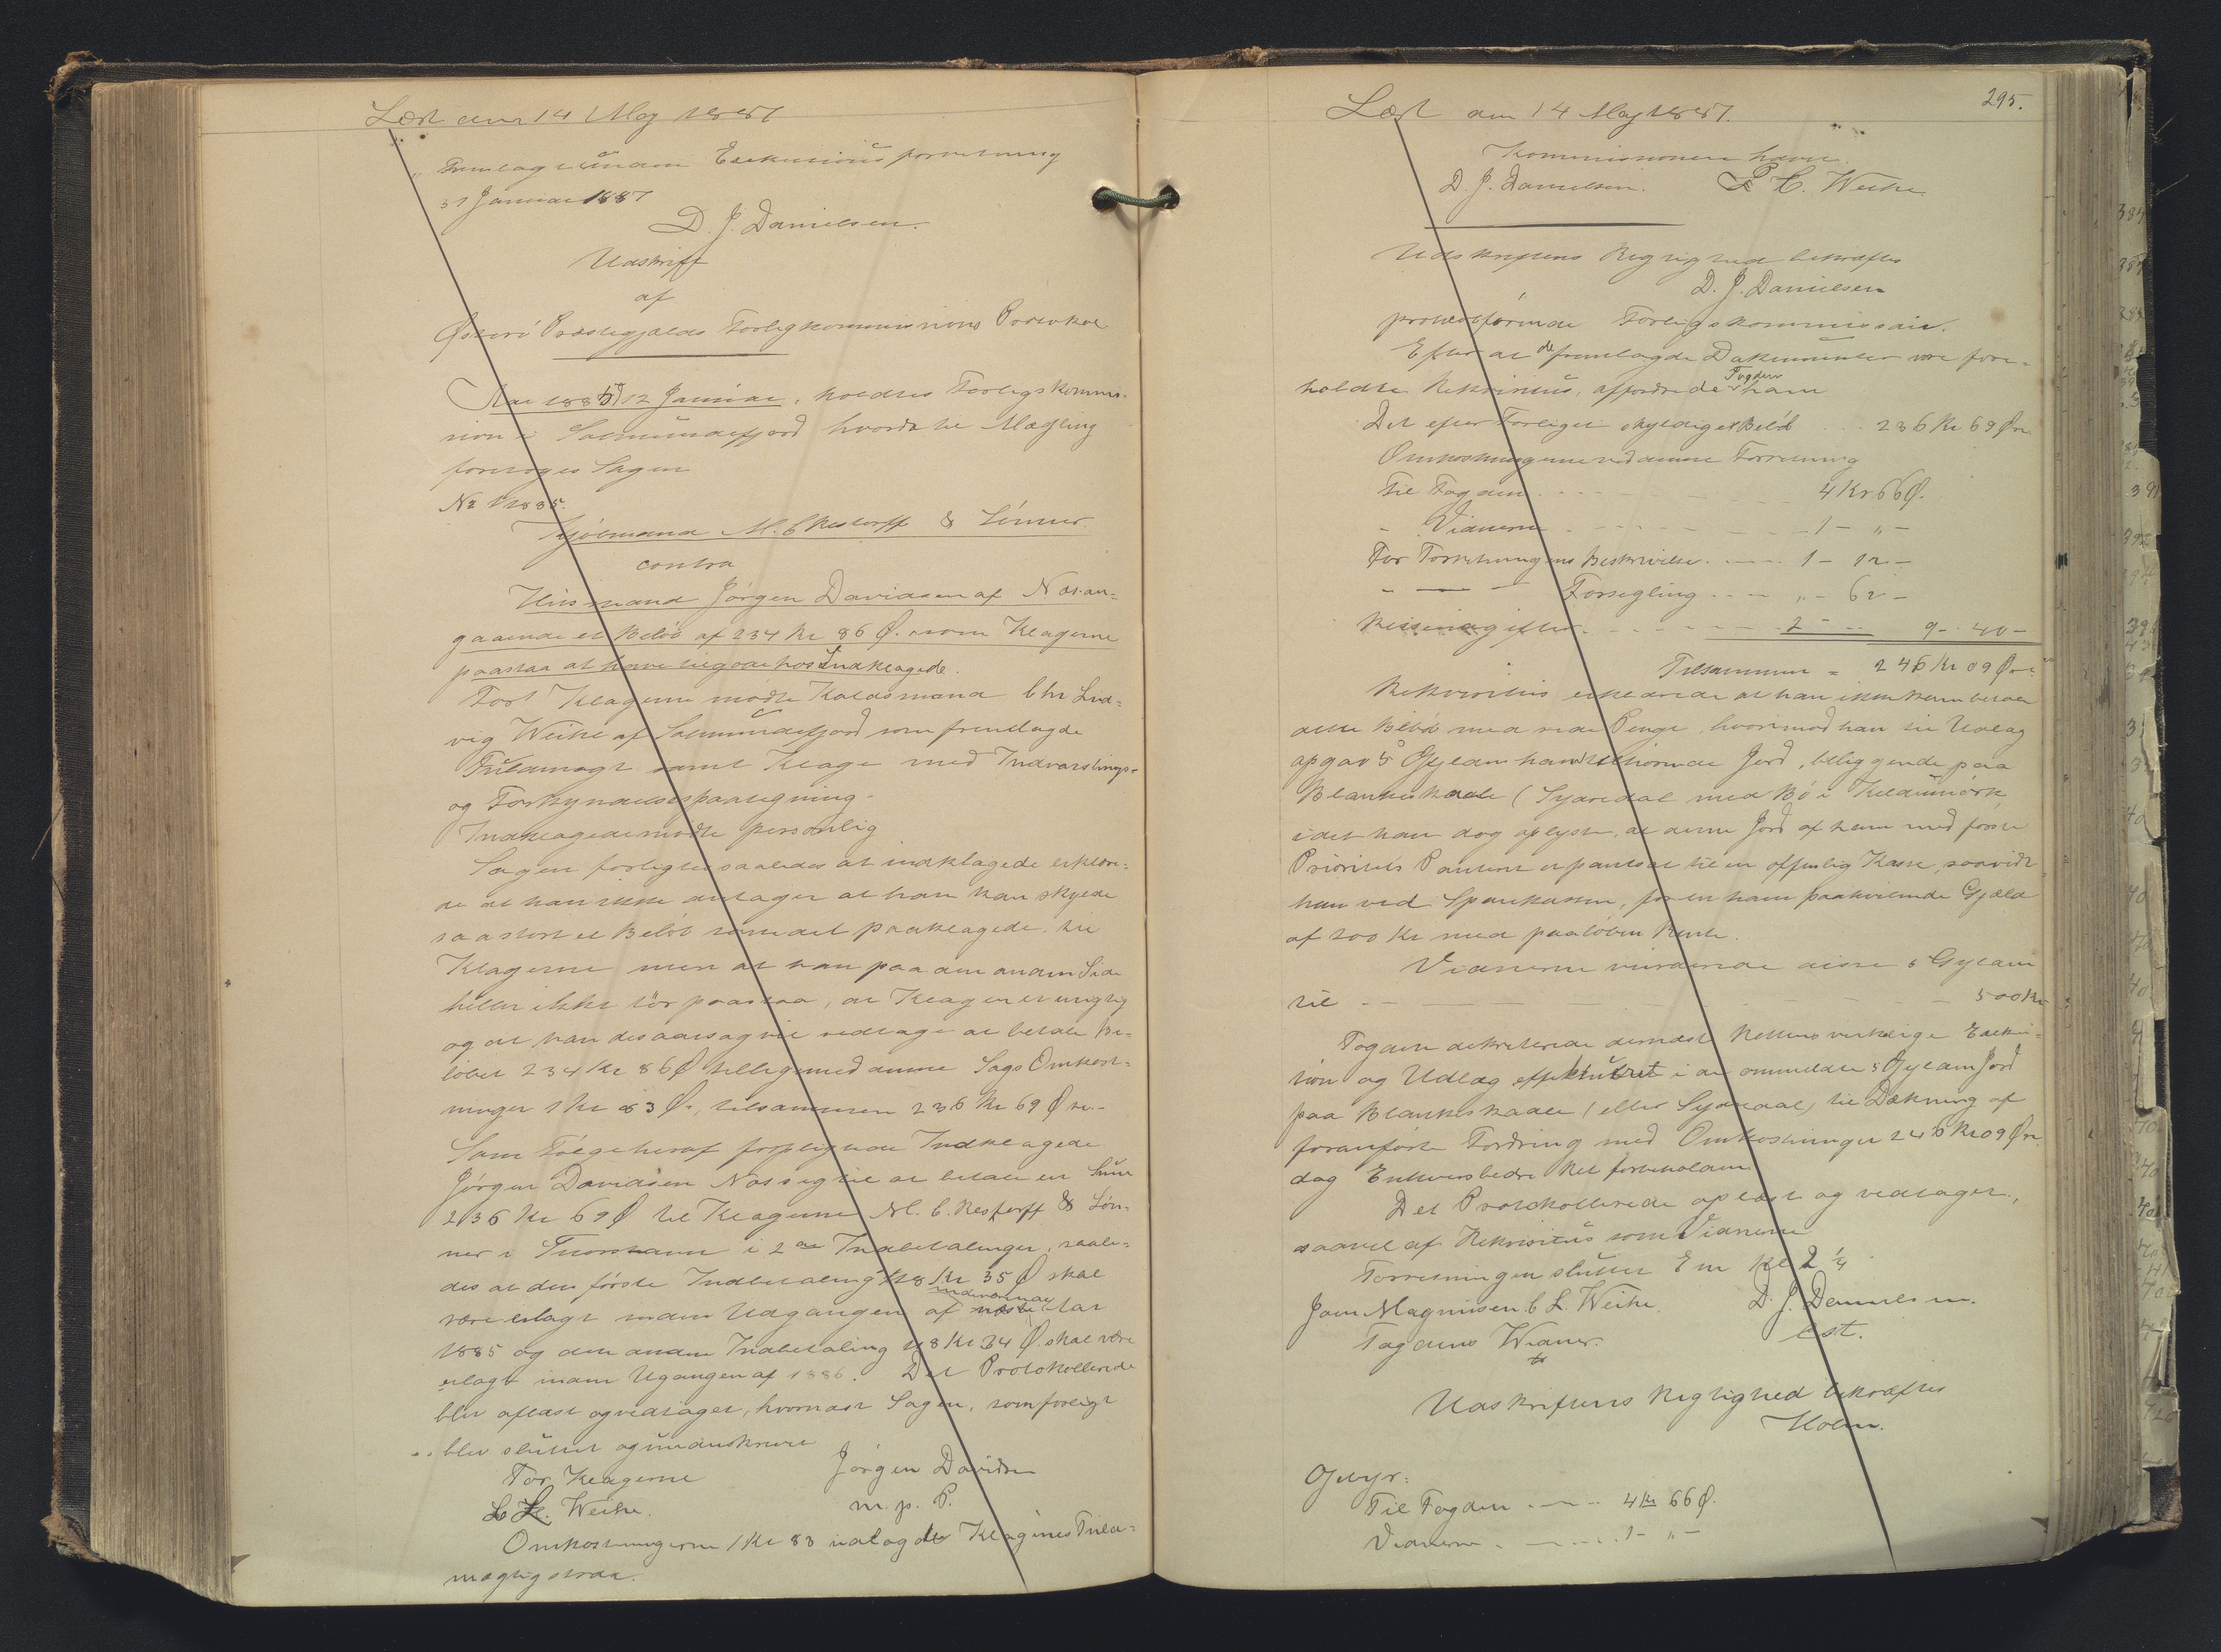 Læst den 14 Maj 1887
„ Fremlagt under Exekutionsforretning
31 Januar 1887
D. J. Danielsen.
Udskrift
af
Østerø Præstegjælds Forligkommissions Protokol
Aar 1885 d 12 Januar, holdtes Forligskommis-
sion i Solmundefjord hvorda til Mægling
foretoges Sagen
No 1 1885.
Kjøbmand M. C. Restorff & Sønner
contra
Husmand Jørgen Davidsen af Næs. an-
gaaende et Beløb af 234 Kr 86 Ø. som Klagerne
paastaa at have tilgode hos Indklagede.
For Klagerne mødte Kaldsmand Chr Lud-
vig Weihe af Solmundefjord som fremlagde
Fuldmagt samt Klage med Indvarslings-
og Forkyndelsespaategning.
Indklagede mødte personlig
Sagen forligtes saaledes at indklagede erklære-
de at han ikke antager at han kan skylde
saa stort et Beløb som det paaklagede til
Klagerne men at han paa den anden Side
heller ikke tør paastaa, at Klagen er urigtig
og at han desaarsag vil vedtage at betale Be-
løbet 234 Kr 86 Ø tilligemed denne Sags Omkost-
ninger 1 Kr 83 Ø., tilsammen 236 Kr 69 Øre.-
Som Følge heraf forpligtede Indklagede
Jørgen Davidsen Næs sig til at betale en Sum
236 Kr 69 Ø til Klagerne M. C. Restorff & Søn-
ner i Thorshavn i 2de Indbetalinger, saale-
des at den første Indbetaling 118 Kr 35 Ø skal
være erlagt inden Udgangen af indeværende Aar
1885 og den anden Indbetaling 118 Kr 34 Ø. skal være
erlagt inden Ugangen af 1886. Det Protokollerede
blev oplæst og vedtaget, hvornæst Sagen, som forligt
blev sluttet og underskrevet
For Klagerne Jørgen Davidsen
C. L. Weihe. m. p. P.
Omkostningerne 1 Kr 83 udlagde Klagernes Fuld-
mægtig strax.
Læst den 14 Maj 1887. 295.
Kommissionen hævet.
D. J. Danielsen. P C. Weihe
Udskriftens Rigtighed bekræftes
D. J. Danielsen
protokolførende Forligskommissair.
Efter at de fremlagde Dokumenter vare fore-
holdte Rekvisitus, affordrede Fogden ham
Det efter Forliget skyldige Beløb . . . 236 Kr 69 Øre
Omkostningerne ved denne Forretning
Til Fogden . . . . . 4 Kr 66 Ø.
- Vidnerne . . . . 1 - „ -
For Forretningens Beskrivelse . . . . 1 - 12 -
- — - Forsegling . . . „ - 62 -
Reiseudgifter . . . . 2 - . . 9 - 40 -
Tilsammen = 246 Kr 09 Øre
Rekvisitus erklærede at han ikke kan betale
dette Beløb med rede Penge, hvorimod han til Udlag
opgav 5 Gylden ham tilhørende Jord, beliggende paa
Blankeskaale (Sydredal med Bø i Keldumørk,
idet han dog oplyste, at denne Jord af ham med første
Prioritets Panteret er pantsat til en offentlig Kasse, saavidt
han ved Sparekassen, for en ham paahvilende Gjæld
af 200 Kr med paaløben Rente.
Vidnerne vurderede disse 5 Gylden
til - - - - - 500 Kr
Fogden dekreterede dernæst Rettens virkelige Exeku-
tion og Udlæg effektueret i de ommeldte 5 Gylden Jord
paa Blankeskaale (eller Sydredal) til Dækning af
foranførte Fordring med Omkostninger 246 Kr 09 Øre
dog Enhvers bedre Ret forbeholden
Det Protokollerede oplæst og vedtaget,
saavel af Rekvisitus som Vidnerne
Forretningen sluttet Em Kl 2 1/4
Joen Magnusen C L. Weihe. D. J. Danielsen.
Fogdens Vidner. cst.
Udskriftens Rigtighed bekræftes
Holm.
Gebyr:
Til Fogden . — . . 4 Kr 66 Ø.
Vidnerne . — . . . . 1 - „ -